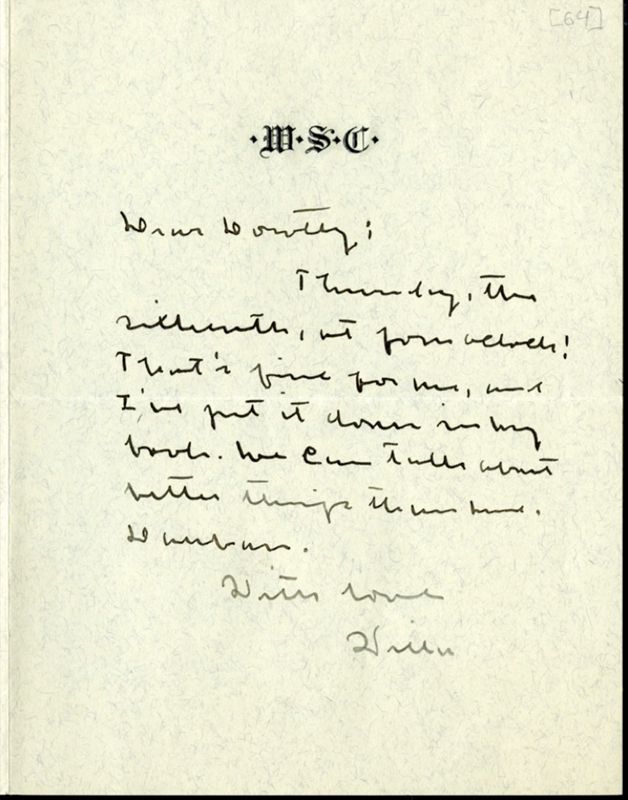 [64]
·W·S·C·
Dear Dorothy;
Thursday, the
sixteenth, at four oclock!
That's fine for me, and
I've put it down in my
book. We can talk about
better things than
With love
Willa